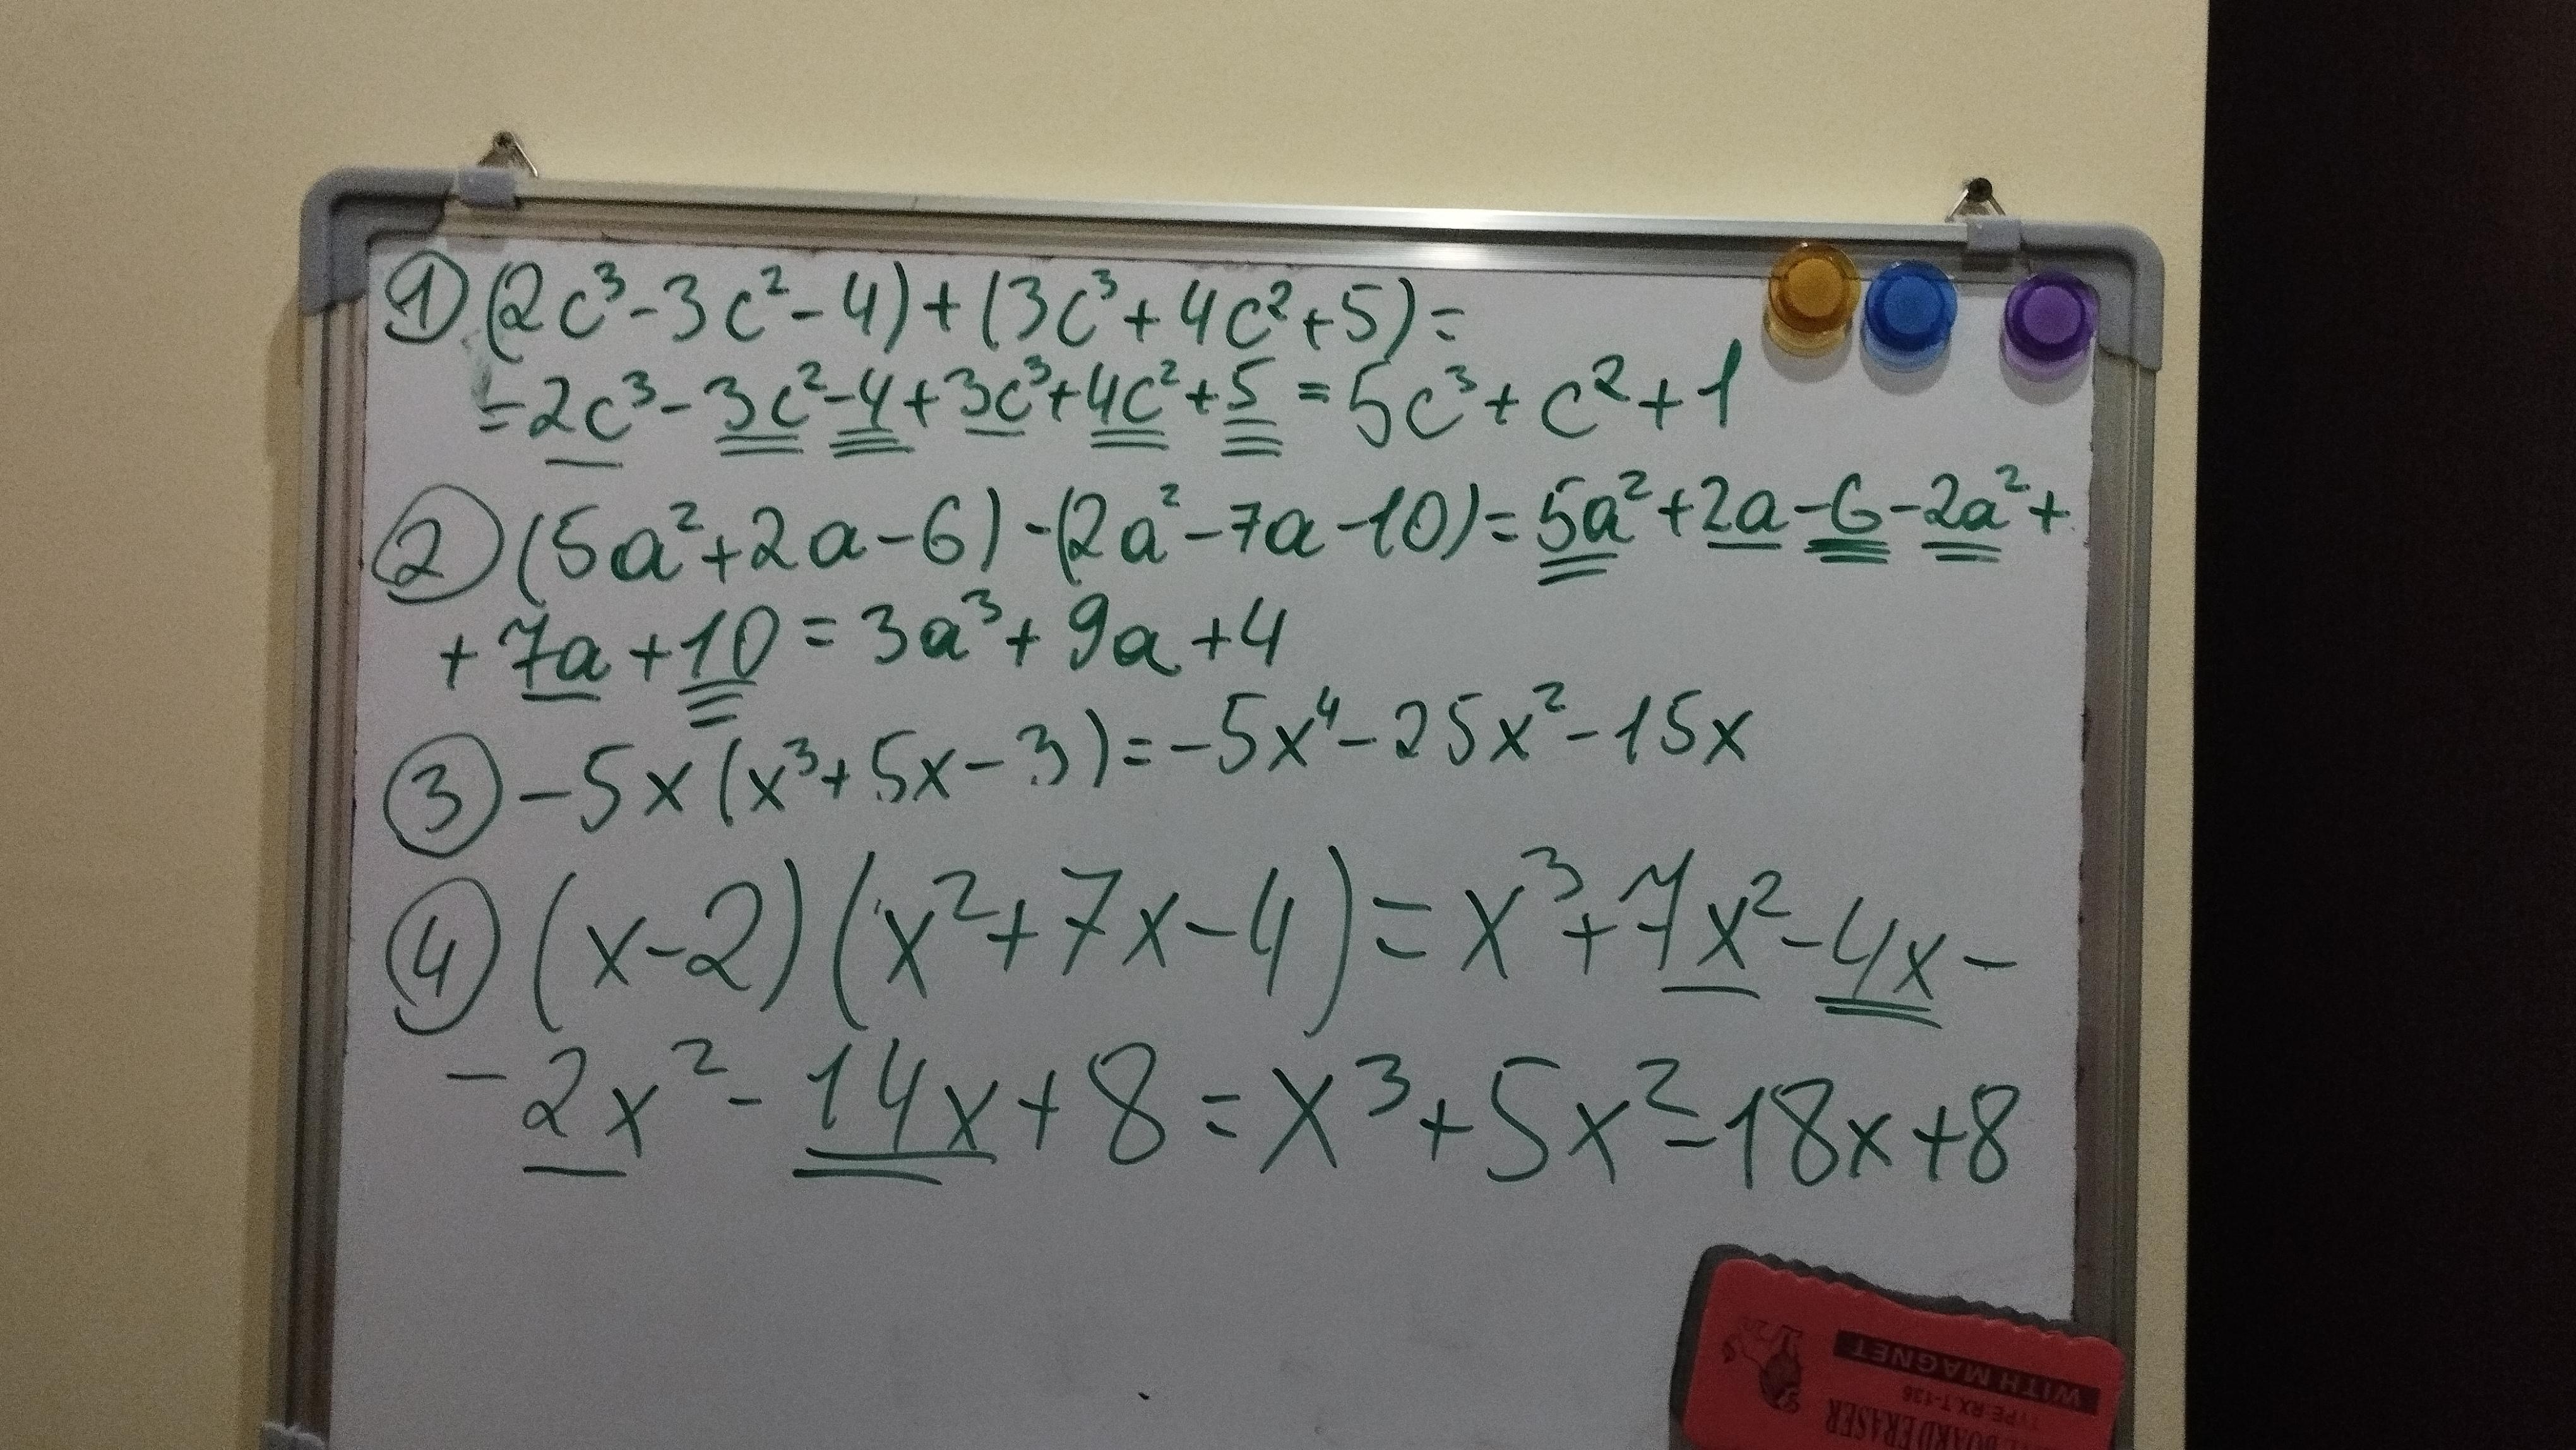 ① (2c³-3c²-4)+(3c³+4c²+5)=
=2c³-3c²-4+3c³+4c²+5=5c³+c²+1
② (5a²+2a-6)-(2a²-7a-10)=5a²+2a-6-2a²+
+7a+10=3a³+9a+4
③ -5x(x³+5x-3)=-5x⁴-25x²-15x
④ (x-2)(x²+7x-4)=x³+7x²-4x-
-2x²-14x+8=x³+5x²-18x+8
WITH MAGNET
TYPE:RX.T-136
BOARD ERASER